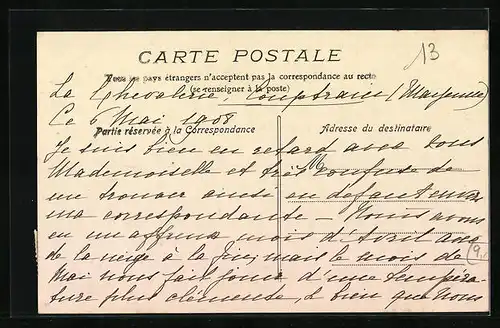 CARTE POSTALE
13
Tous les pays étrangers n'acceptent pas la correspondance au recto
(se renseigner à la poste)
La Chevalerie, (Mayenne)
Ce 6 Mai 1908
Partie réservée à la Correspondance
Adresse du destinataire
Je suis bien en retard avec vous
Mademoiselle et très confuse de
me trouver ainsi en défaut envers
ma correspondante — Nous avons
eu un affreux mois d'Avril avec
de la neige à la fin, mais le mois de
Mai nous fait jouir d'une tempéra-
ture plus clémente, et bien que nous